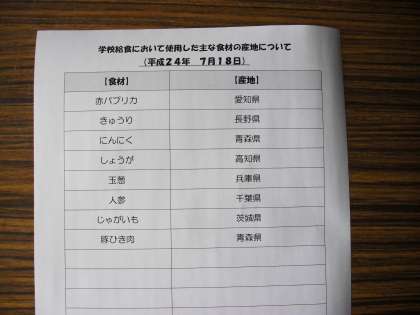 学校給食において使用した主な食材の産地について
(平成24年 7月18日)
【食材】 【産地】
赤パプリカ 愛知県
きゅうり 長野県
にんにく 青森県
しょうが 高知県
玉葱 兵庫県
人参 千葉県
じゃがいも 茨城県
豚ひき肉 青森県